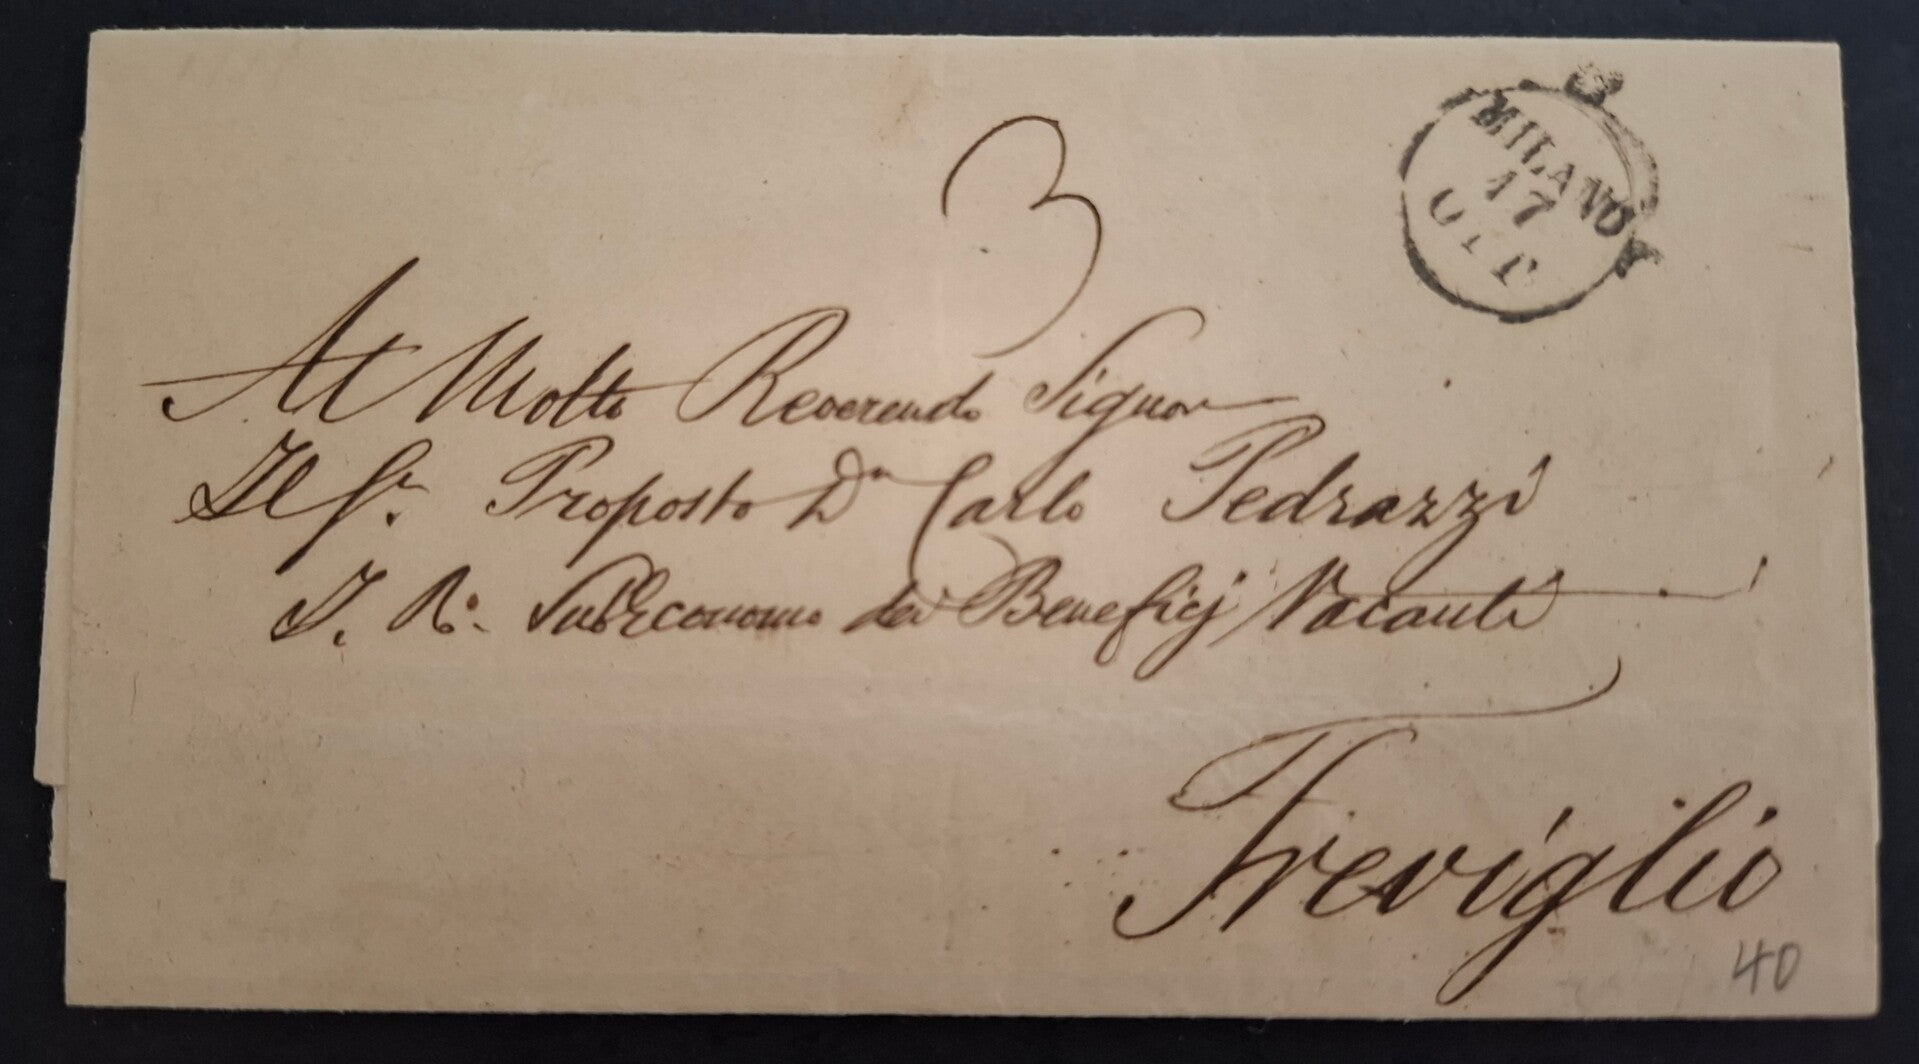 3
MILANO
17
OTT
Al Molto Reverendo Signor
Il Sr. Proposto Dn Carlo Pedrazzi
I. R. SubEconomo dei Beneficj Vacanti
Treviglio
40